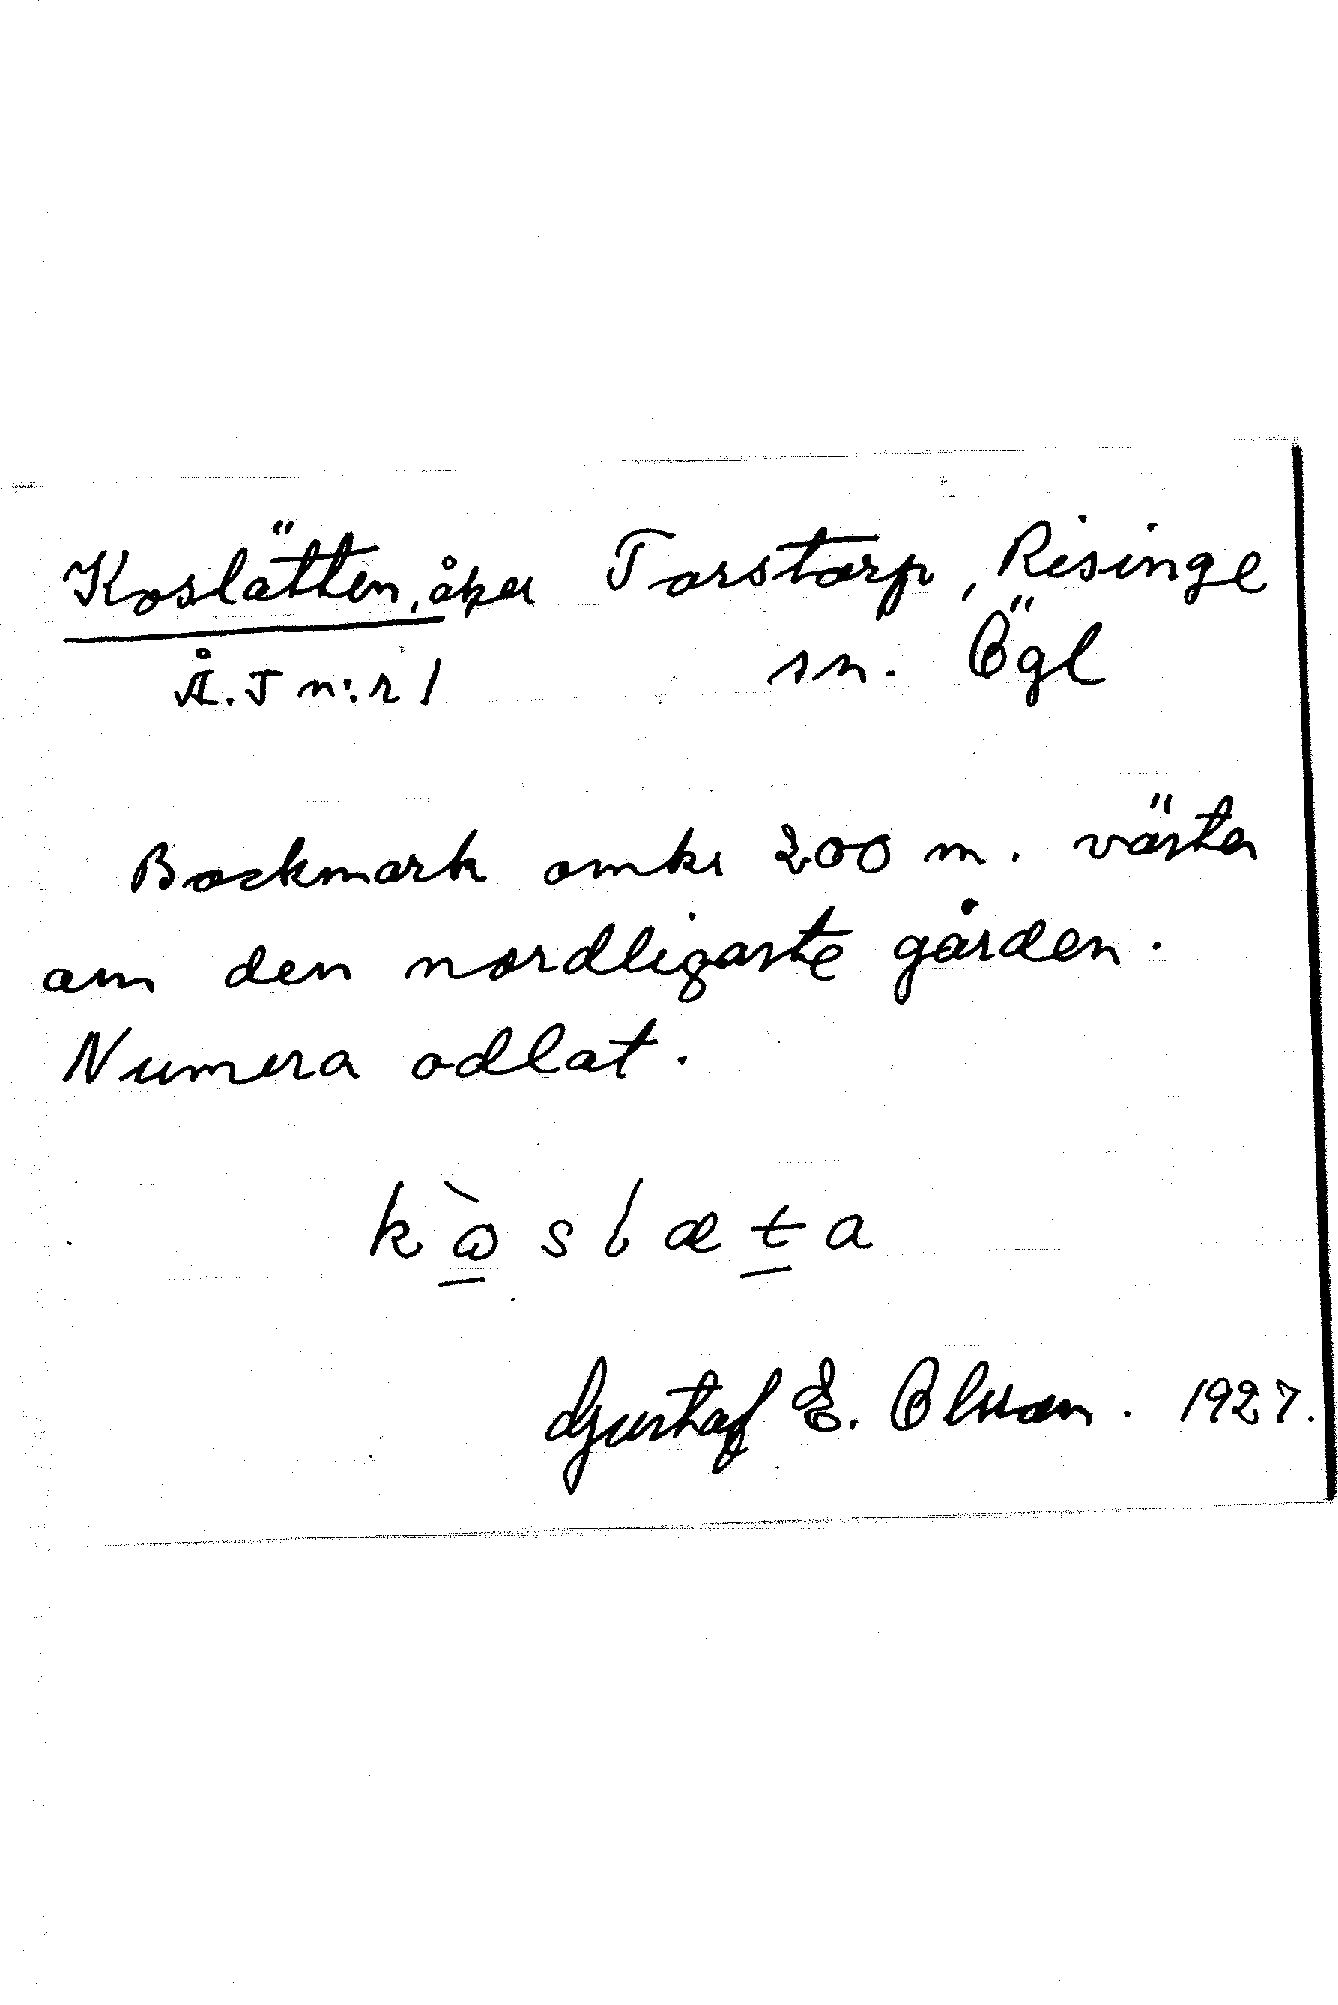 Koslätten, åker Torstorp, Risinge
Å. T n:r 1 sn. Ögl
Backmark omkr 200 m. väster
om den nordligaste gården.
Numera odlat.
Gustaf E. Olsson. 1927.